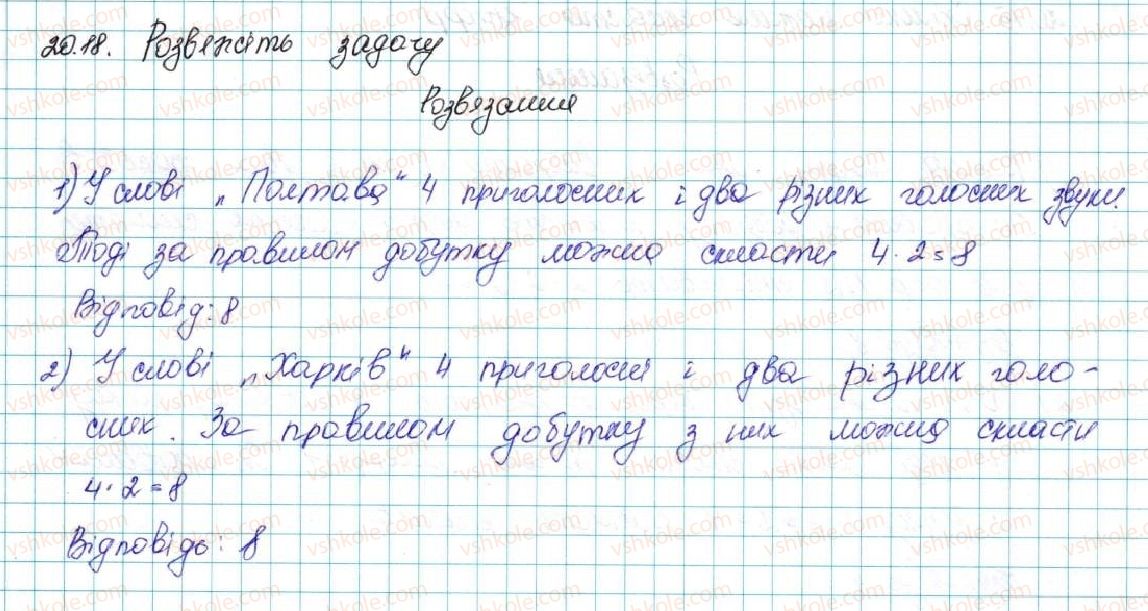 20.18. Розвяжіть задачу
Розвязання
1) У слові „Полтава" 4 приголосних і два різних голосних звуки.
Тоді за правилом добутку можна скласти 4·2=8
Відповід: 8
2) У слові „Харків" 4 приголосні і два різних голо-
сних. За правилом добутку з них можна скласти
4·2=8
Відповідь: 8